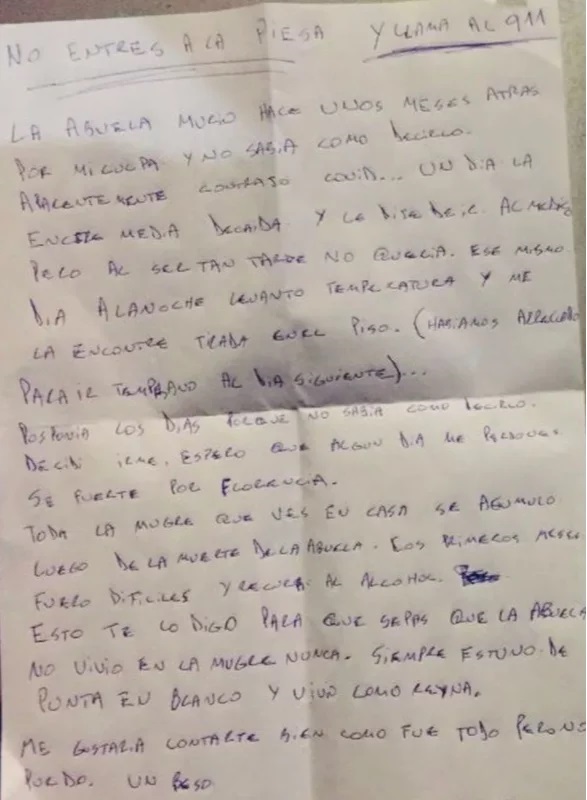 NO ENTRES A LA PIESA Y LLAMA AL 911
LA ABUELA MURIO HACE UNOS MESES ATRAS
POR MI CULPA Y NO SABIA COMO DECIRLO.
APARENTEMENTE CONTRAJO COVID... UN DIA LA
ENCONTRE MEDIA DECAIDA Y LE DIJE DE IR AL MEDICO
PERO AL SER TAN TARDE NO QUERIA. ESE MISMO
DIA A LA NOCHE LEVANTO TEMPERATURA Y ME
LA ENCONTRE TIRADA EN EL PISO. (HABIAMOS ARREGLADO
PARA IR TEMPRANO AL DIA SIGUIENTE)...
POSPONIA LOS DIAS PORQUE NO SABIA COMO DECIRLO.
DECIDI IRME. ESPERO QUE ALGUN DIA ME PERDONES
SE FUERTE POR FLORENCIA.
TODA LA MUGRE QUE VES EN CASA SE AGUMULO
LUEGO DE LA MUERTE DE LA ABUELA. LOS PRIMEROS MESES
FUERO DIFICILES Y RECURRI AL ALCOHOL.
ESTO TE LO DIGO PARA QUE SEPAS QUE LA ABUELA
NO VIVIO EN LA MUGRE NUNCA. SIEMPRE ESTUVO DE
PUNTA EN BLANCO Y VIVIO COMO REYNA.
ME GUSTARIA CONTARTE BIEN COMO FUE TODO PERO NO
PUEDO. UN BESO